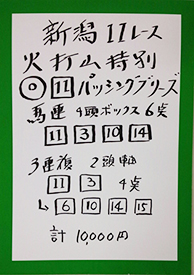 新潟11レース
火打山特別
◎ 11 パッシングブリーズ
馬連 4頭ボックス 6点
11 3 10 14
3連複 2頭軸
11 3 4点
↳ 6 10 14 15
計 10,000円